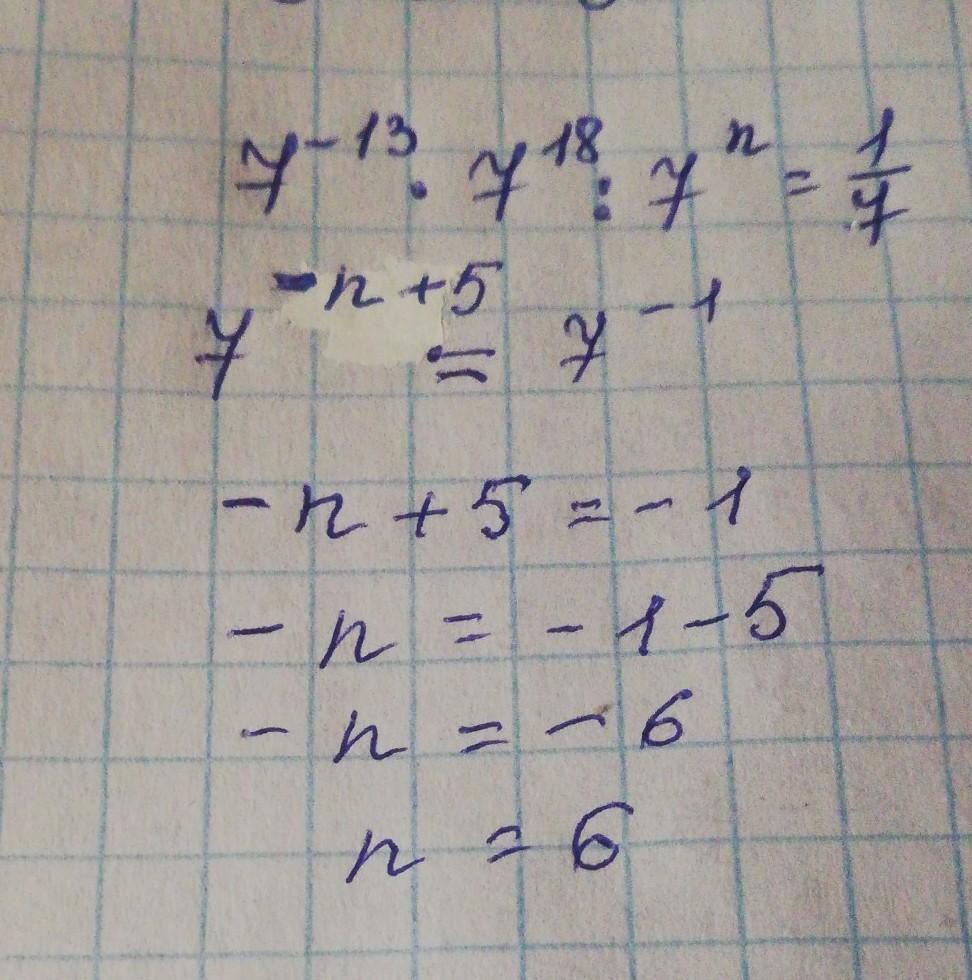 7⁻¹³ · 7¹⁸ : 7ⁿ = 1/7
7⁻ⁿ⁺⁵ = 7⁻¹
-n + 5 = -1
-n = -1-5
-n = -6
n = 6